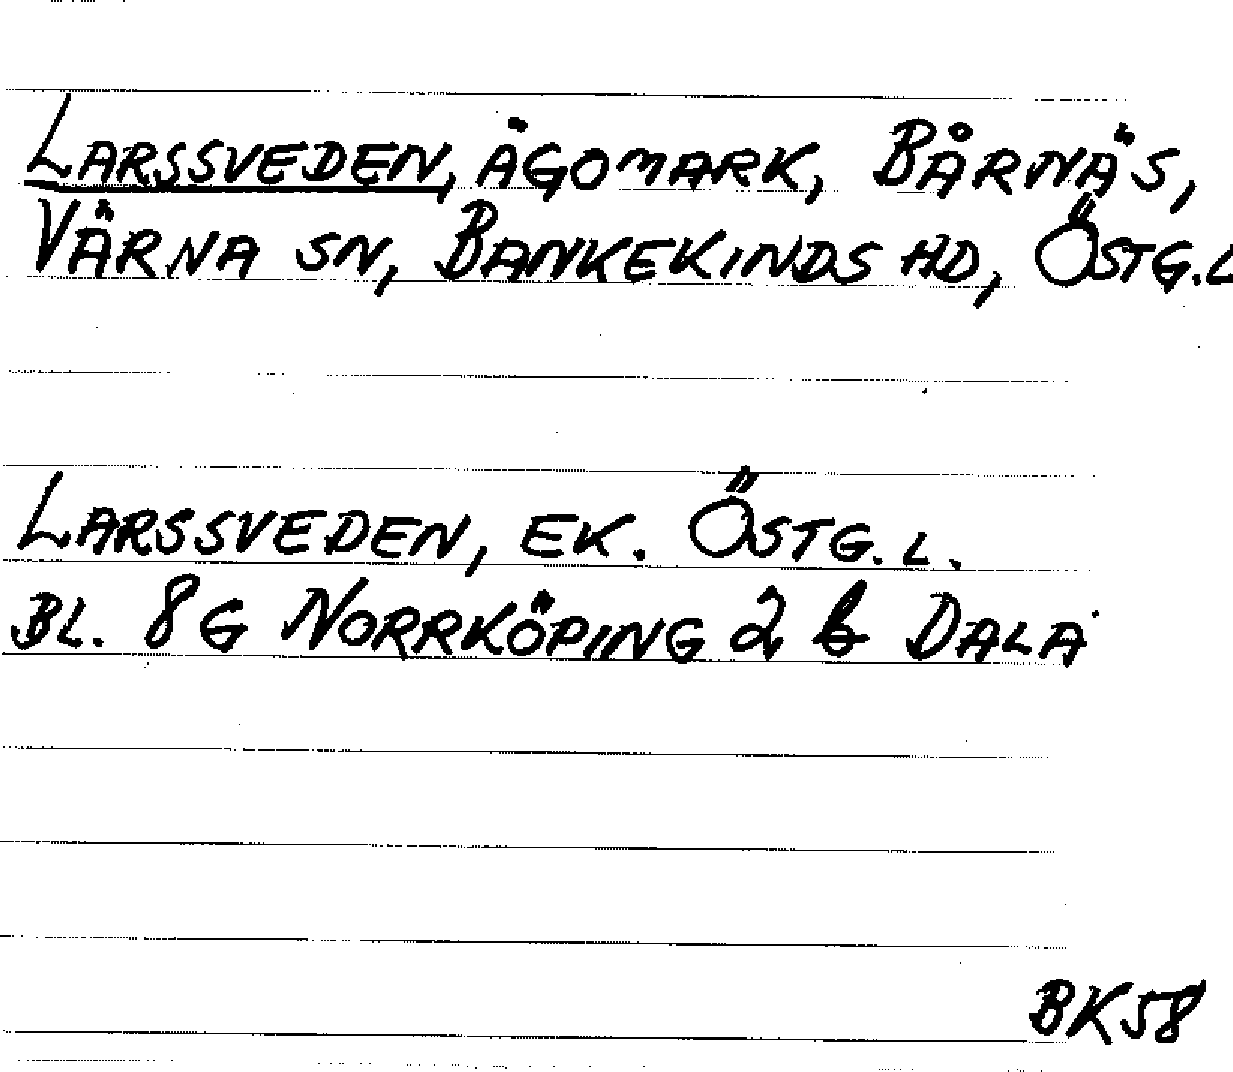 LARSSVEDEN, ÄGOMARK, BÅRNÄS,
VÄRNA SN, BANKEKINDS HD, ÖSTG.L
LARSSVEDEN, EK. ÖSTG. L.
BL. 8 G NORRKÖPING 2 b DALA
BK58